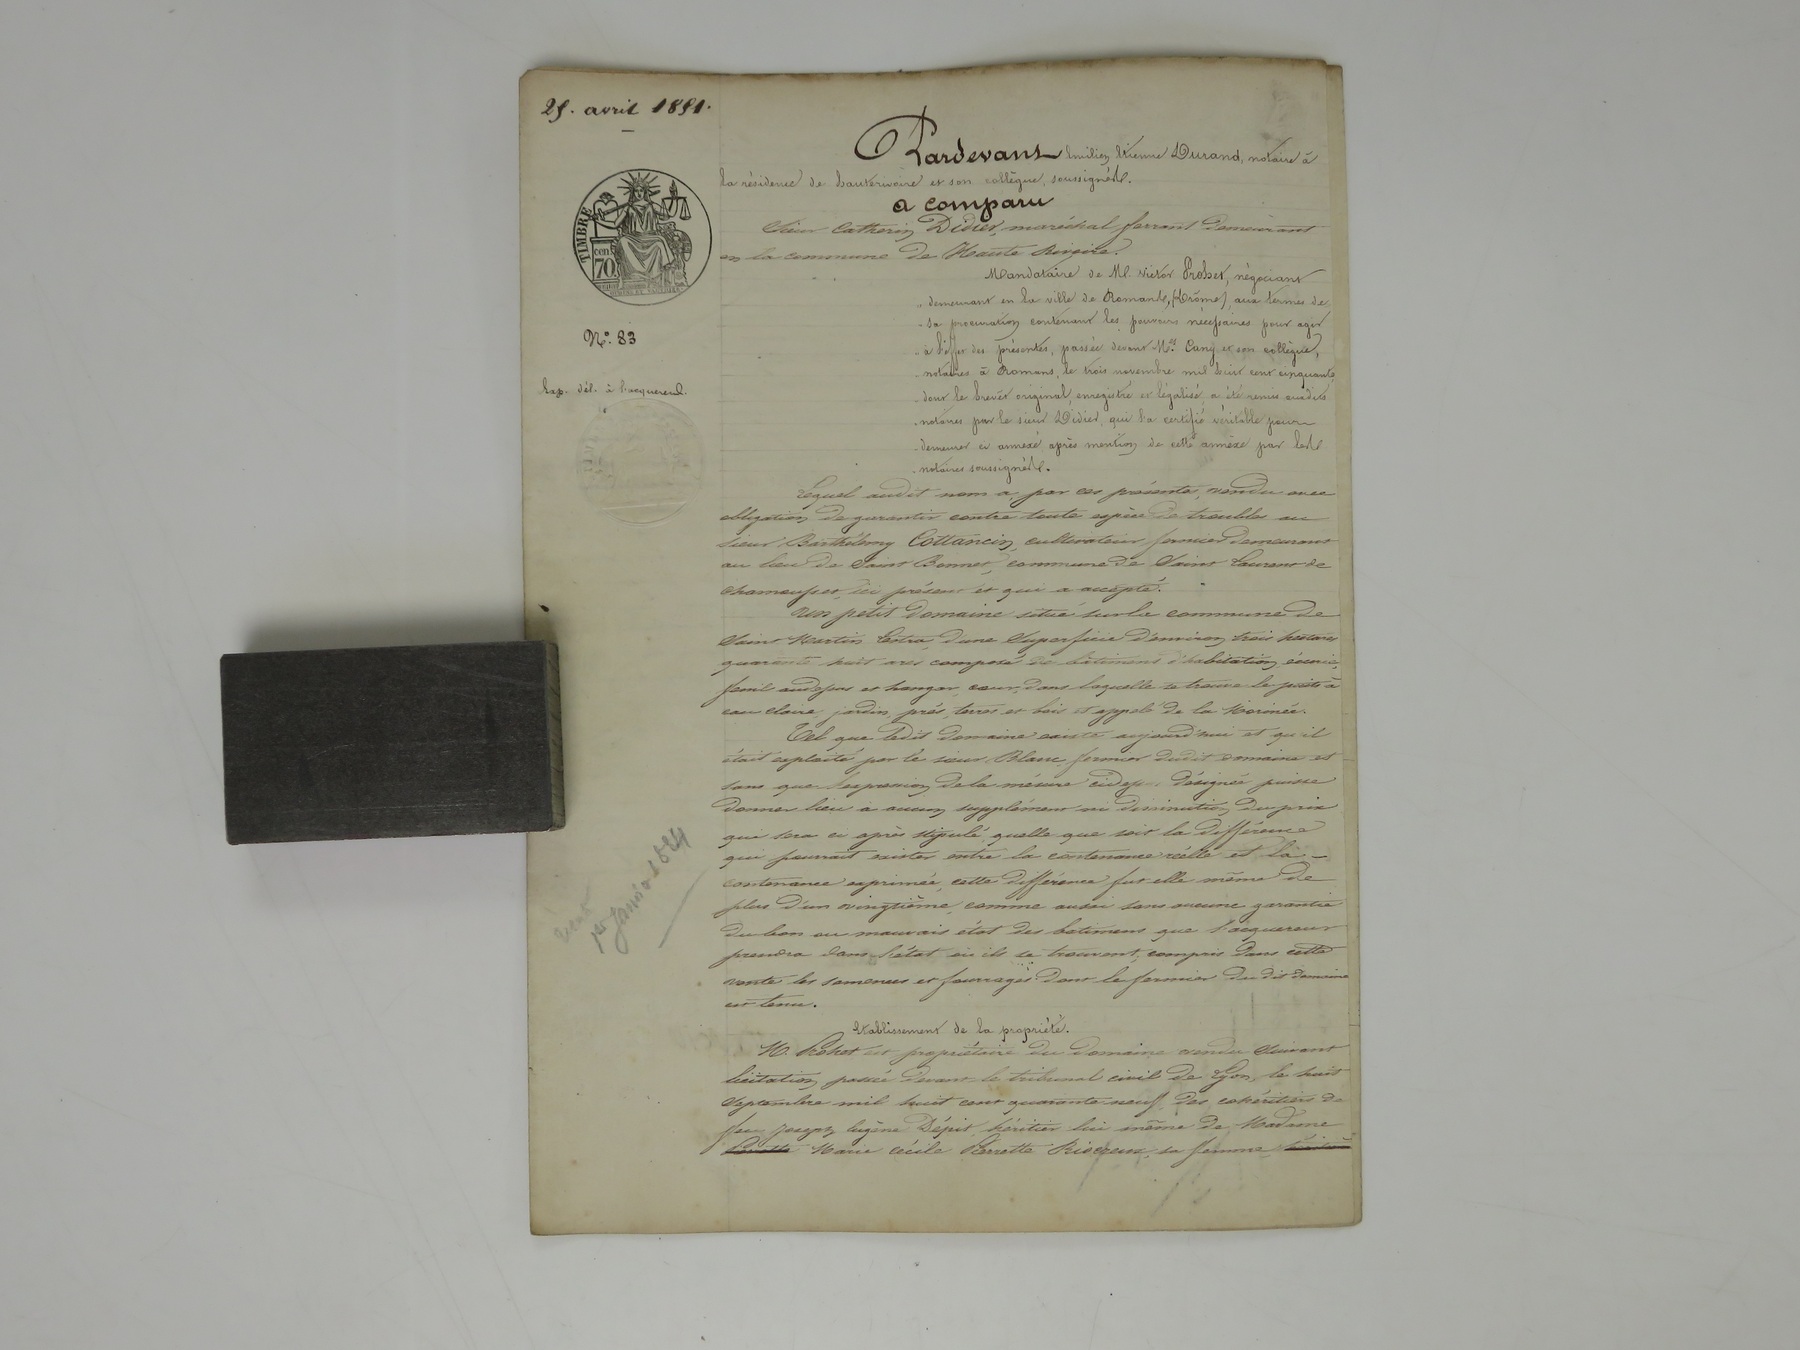 25. avril 1851.
TIMBRE
cen
70
N°. 83
Exp. dél. à l'acquereur.
1er Janvier
Pardevant Emilien Etienne Durand, notaire à
la résidence de hauterivoire et son collègue, soussignés.
a comparu
Sieur Catherin Didier, maréchal ferrant demeurant
en la commune de Haute Rivoire.
Mandataire de M. Victor Probet, négociant
demeurant en la ville de Romans, (Drôme), aux termes de
sa procuration contenant les pouvoirs nécessaires pour agir
à l'effet des présentes, passée devant Me. Cany et son collègue,
notaires à Romans, le trois novembre mil huit cent cinquante,
dont le brevet original, enregistré et légalisé, a été remis auxdits
notaires par le sieur Didier, qui l'a certifié véritable pour
demeurer ci annexé après mention de cette annexe par les
notaires soussignés.
Lequel audit nom a, par ces présentes, vendu avec
obligation de garantir contre toute espèce de troubles au
sieur Barthélemy Cottancin, cultivateur fermier demeurant
au lieu de Saint Bonnet, commune de Saint Laurent de
chamousset, ici présent et qui a accepté.
Un petit domaine situé sur la commune de
Saint Martin Lestra, d'une superficie d'environ trois hectares
quarante huit ares composé de bâtimens d'habitation, écurie,
fenil audessus et hangar, cour, dans laquelle se trouve le puits à
eau claire, jardin, prés, terres et bois et appelé de la
Tel que ledit domaine existe aujourd'hui et qu'il
était exploité par le sieur Blanc, fermier dudit domaine et
sans que l'expression de la mésure cidessus désignée puisse
donner lieu à aucun supplément ni diminution du prix
qui sera ci après stipulé, quelle que soit la différence
qui pourrait exister entre la contenance réelle et la
contenance exprimée, cette différence fut elle même de
plus d'un vingtième, comme aussi sans aucune garantie
du bon ou mauvais état des batimens que l'acquereur
prendra dans l'état où ils se trouvent, compris dans cette
vente les semences et fourrages dont le fermier du dit domaine
est tenu.
Etablissement de la propriété.
M. Probet est propriétaire du domaine vendu suivant
licitation passée devant le tribunal civil de Lyon, le huit
septembre mil huit cent quarante neuf, des cohéritiers de
feu Joseph Eugène Dépit, héritier lui même de Madame
Marie Cécile Pierrette sa femme,